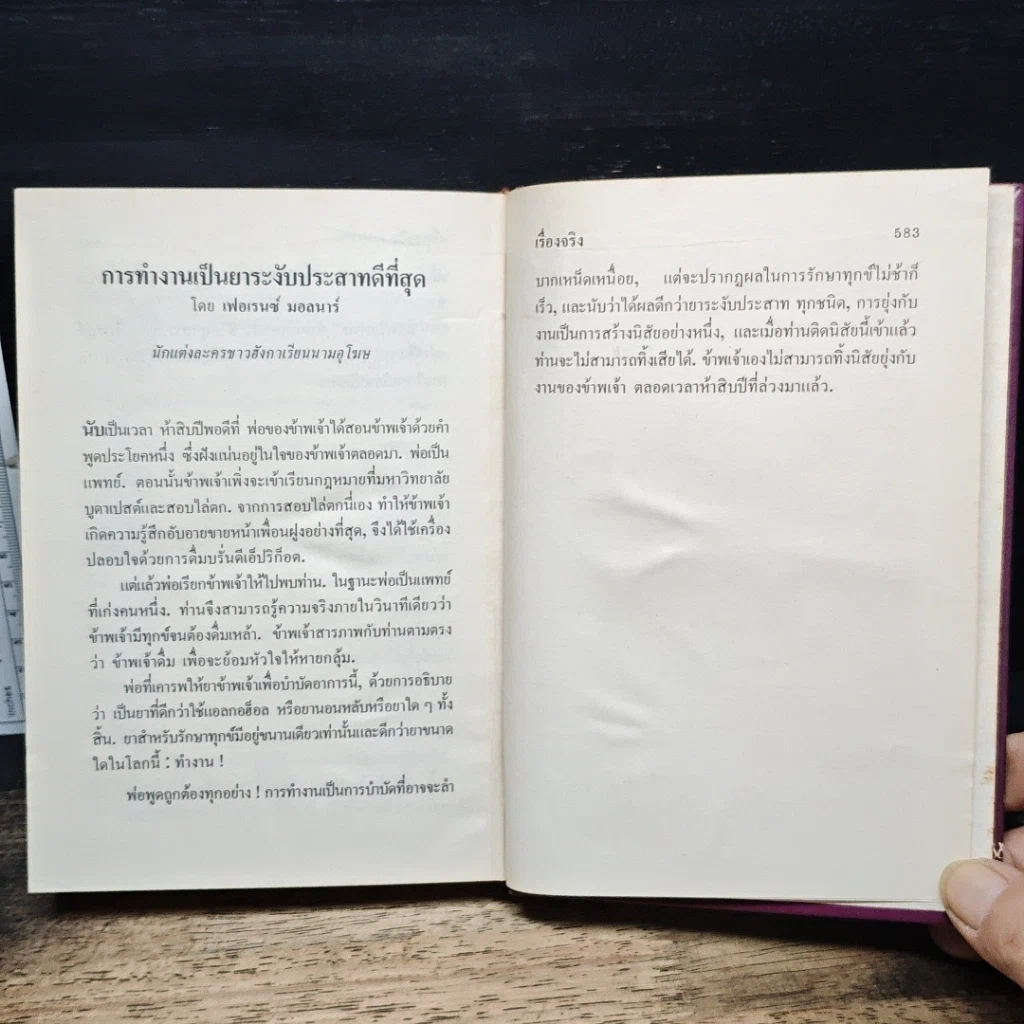 การทำงานเป็นยาระงับประสาทดีที่สุด
โดย เฟอเรนซ์ มอลนาร์
นักแต่งละครชาวฮังกาเรียนนามอุโฆษ
นับเป็นเวลา ห้าสิบปีพอดีที่ พ่อของข้าพเจ้าได้สอนข้าพเจ้าด้วยคำ
พูดประโยคหนึ่ง ซึ่งฝังแน่นอยู่ในใจของข้าพเจ้าตลอดมา. พ่อเป็น
แพทย์. ตอนนั้นข้าพเจ้าเพิ่งจะเข้าเรียนกฎหมายที่มหาวิทยาลัย
บูดาเปสต์และสอบไล่ตก. จากการสอบไล่ตกนี่เอง ทำให้ข้าพเจ้า
เกิดความรู้สึกอับอายขายหน้าเพื่อนฝูงอย่างที่สุด, จึงได้ใช้เครื่อง
ปลอบใจด้วยการดื่มบรั่นดีเอ็ปริก็อต.
แต่แล้วพ่อเรียกข้าพเจ้าให้ไปพบท่าน. ในฐานะพ่อเป็นแพทย์
ที่เก่งคนหนึ่ง. ท่านจึงสามารถรู้ความจริงภายในวินาทีเดียวว่า
ข้าพเจ้ามีทุกข์จนต้องดื่มเหล้า. ข้าพเจ้าสารภาพกับท่านตามตรง
ว่า ข้าพเจ้าดื่ม เพื่อจะย้อมหัวใจให้หายกลุ้ม.
พ่อที่เคารพให้ยาข้าพเจ้าเพื่อบำบัดอาการนี้, ด้วยการอธิบาย
ว่า เป็นยาที่ดีกว่าใช้แอลกอฮ็อล หรือยานอนหลับหรือยาใด ๆ ทั้ง
สิ้น. ยาสำหรับรักษาทุกข์มีอยู่ขนานเดียวเท่านั้นและดีกว่ายาขนาด
ใดในโลกนี้ : ทำงาน !
พ่อพูดถูกต้องทุกอย่าง ! การทำงานเป็นการบำบัดที่อาจจะลำ
เรื่องจริง 583
บากเหน็ดเหนื่อย, แต่จะปรากฏผลในการรักษาทุกข์ไม่ช้าก็
เร็ว, และนับว่าได้ผลดีกว่ายาระงับประสาท ทุกชนิด, การยุ่งกับ
งานเป็นการสร้างนิสัยอย่างหนึ่ง, และเมื่อท่านติดนิสัยนี้เข้าแล้ว
ท่านจะไม่สามารถทิ้งเสียได้. ข้าพเจ้าเองไม่สามารถทิ้งนิสัยยุ่งกับ
งานของข้าพเจ้า ตลอดเวลาห้าสิบปีที่ล่วงมาแล้ว.